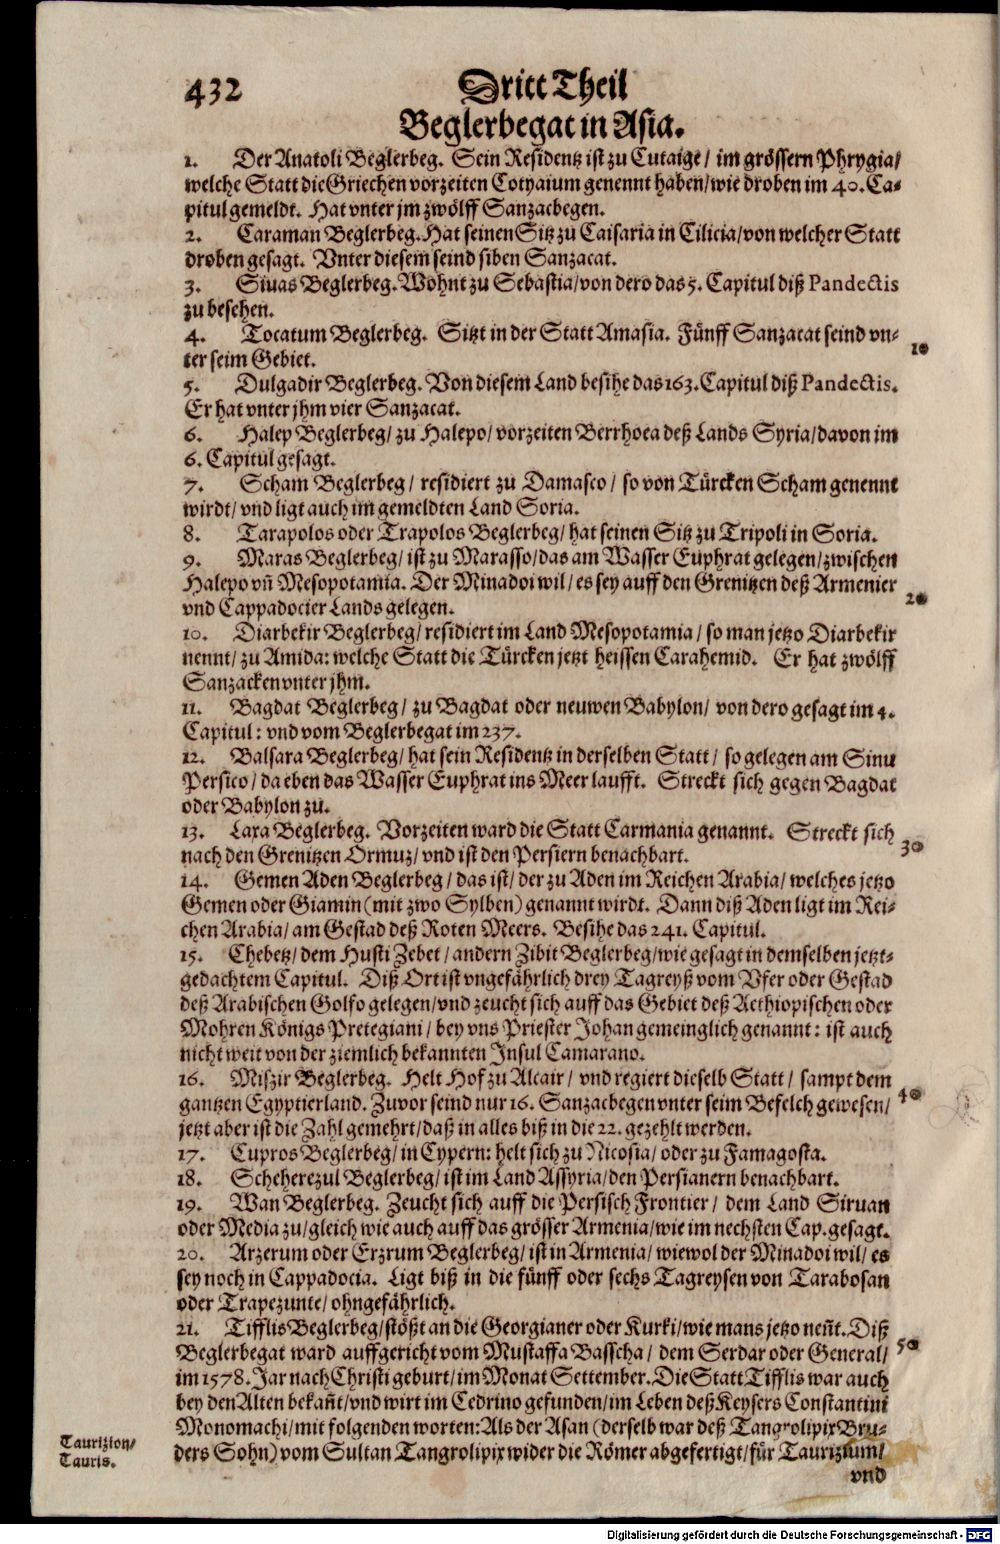 432 Dritt Theil
Beglerbegat in Asia.
1. Der Anatoli Beglerbeg. Sein Residentz ist zu Cutaige/ im grössern Phrygia/
welche Statt die Griechen vorzeiten Cotyaium genennt haben/ wie droben im 40. Ca-
pitul gemeldt. Hat vnter jm zwölff Sanzacbegen.
2. Caraman Beglerbeg. Hat seinen Sitz zu Caisaria in Cilicia/ von welcher Statt
droben gesagt. Vnter diesem seind siben Sanzacat.
3. Siuas Beglerbeg. Wohnt zu Sebastia/ von dero das 5. Capitul diß Pandectis
zu besehen.
4. Tocatum Beglerbeg. Sitzt in der Statt Amasia. Fünff Sanzacat seind vn-
ter seim Gebiet.
10
5. Dulgadir Beglerbeg. Von diesem Land besihe das 163. Capitul diß Pandectis.
Er hat vnter jhm vier Sanzacat.
6. Halep Beglerbeg/ zu Halepo/ vorzeiten Berrhoea deß Lands Syria/ davon im
6. Capitul gesagt.
7. Scham Beglerbeg/ residiert zu Damasco/ so von Türcken Scham genennt
wirdt/ vnd ligt auch im gemeldten Land Soria.
8. Tarapolos oder Trapolos Beglerbeg/ hat seinen Sitz zu Tripoli in Soria.
9. Maras Beglerbeg/ ist zu Marasso/ das am Wasser Euphrat gelegen/ zwischen
Halepo vñ Mesopotamia. Der Minadoi wil/ es sey auff den Grenitzen deß Armenier
20
vnd Cappadocier Lands gelegen.
10. Diarbekir Beglerbeg/ residiert im Land Mesopotamia/ so man jetzo Diarbekir
nennt/ zu Amida: welche Statt die Türcken jetzt heissen Carahemid. Er hat zwölff
Sanzacken vnter jhm.
11. Bagdat Beglerbeg/ zu Bagdat oder neuwen Babylon/ von dero gesagt im 4.
Capitul: vnd vom Beglerbegat im 237.
12. Balsara Beglerbeg/ hat sein Residentz in derselben Statt/ so gelegen am Sinu
Persico/ da eben das Wasser Euphrat ins Meer laufft. Streckt sich gegen Bagdat
oder Babylon zu.
13. Laxa Beglerbeg. Vorzeiten ward die Statt Carmania genannt. Streckt sich
30
nach den Grenitzen Ormuz/ vnd ist den Persiern benachbart.
14. Gemen Aden Beglerbeg/ das ist/ der zu Aden im Reichen Arabia/ welches jetzo
Gemen oder Giamin (mit zwo Sylben) genannt wirdt. Dann diß Aden ligt im Rei-
chen Arabia/ am Gestad deß Roten Meers. Besihe das 241. Capitul.
15. Chebetz/ dem Husti Zebet/ andern Zibit Beglerbeg/ wie gesagt in demselben jetzt-
gedachtem Capitul. Diß Ort ist vngefährlich drey Tagreyß vom Vfer oder Gestad
deß Arabischen Golfo gelegen/ vnd zeucht sich auff das Gebiet deß Aethiopischen oder
Mohren Königs Pretegiani/ bey vns Priester Johan gemeinglich genannt: ist auch
nicht weit von der ziemlich bekannten Insul Camarano.
16. Miszir Beglerbeg. Helt Hof zu Alcair/ vnd regiert dieselb Statt/ sampt dem
40
gantzen Egyptierland. Zuvor seind nur 16. Sanzacbegen vnter seim Befelch gewesen/
jetzt aber ist die Zahl gemehrt/ daß in alles biß in die 22. gezehlt werden.
17. Cupros Beglerbeg/ in Cypern: helt sich zu Nicosia/ oder zu Famagosta.
18. Scheherezul Beglerbeg/ ist im Land Assyria/ den Persianern benachbart.
19. Wan Beglerbeg. Zeucht sich auff die Persisch Frontier/ dem Land Siruan
oder Media zu/ gleich wie auch auff das grösser Armenia/ wie im nechsten Cap. gesagt.
20. Arzerum oder Erzrum Beglerbeg/ ist in Armenia/ wiewol der Minadoi wil/ es
sey noch in Cappadocia. Ligt biß in die fünff oder sechs Tagreysen von Tarabosan
oder Trapezunte/ ohngefährlich.
21. Tifflis Beglerbeg/ stößt an die Georgianer oder Kurki/ wie mans jetzo neñt. Diß
50
Beglerbegat ward auffgericht vom Mustaffa Basscha/ dem Serdar oder General/
im 1578. Jar nach Christi geburt/ im Monat Settember. Die Statt Tifflis war auch
bey den Alten bekañt/ vnd wirt im Cedrino gefunden/ im Leben deß Keysers Constantini
Monomachi/ mit folgenden worten: Als der Asan (derselb war deß Tangrolipix Bru-
ders Sohn) vom Sultan Tangrolipix wider die Römer abgefertigt/ für Taurizium/
Taurizion/
Tauris.
vnd
Digitalisierung gefördert durch die Deutsche Forschungsgemeinschaft - DFG